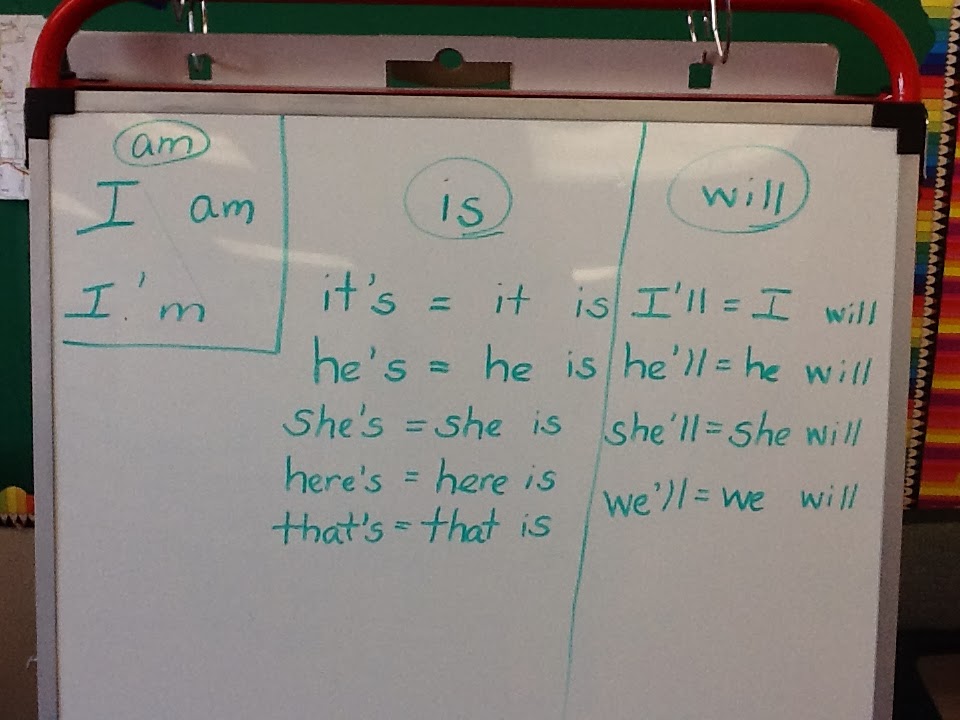 am
I am
I'm
is
it's = it is
he's = he is
she's = she is
here's = here is
that's = that is
will
I'll = I will
he'll = he will
she'll = she will
we'll = we will